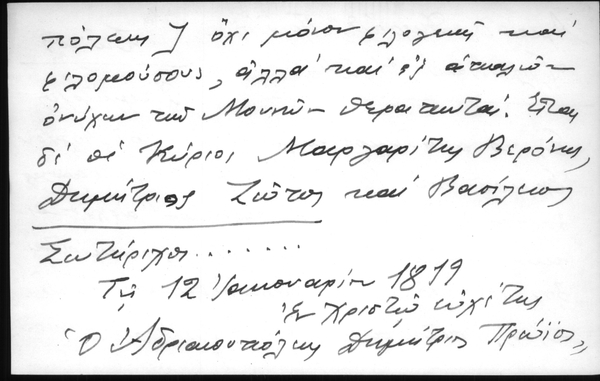 πόλεως] ὄχι μόνον φιλογενεῖς καί
φιλομούσους, ἀλλά καί ἐξ ἁπαλῶν
ὀνύχων τῶν Μουσῶν θεραπευταί. Ἦσαν
δέ οἱ Κύριοι Μαργαρίτης Βερόνης,
Δημήτριος Ζώτος καί Βασίλειος
Σωτήριχος.......
Τῇ 12 Ἰανουαρίου 1819
ἐν Χριστῷ εὐχέτης
ὁ Ἀδριανουπόλεως Δημήτριος Πρώϊος,,